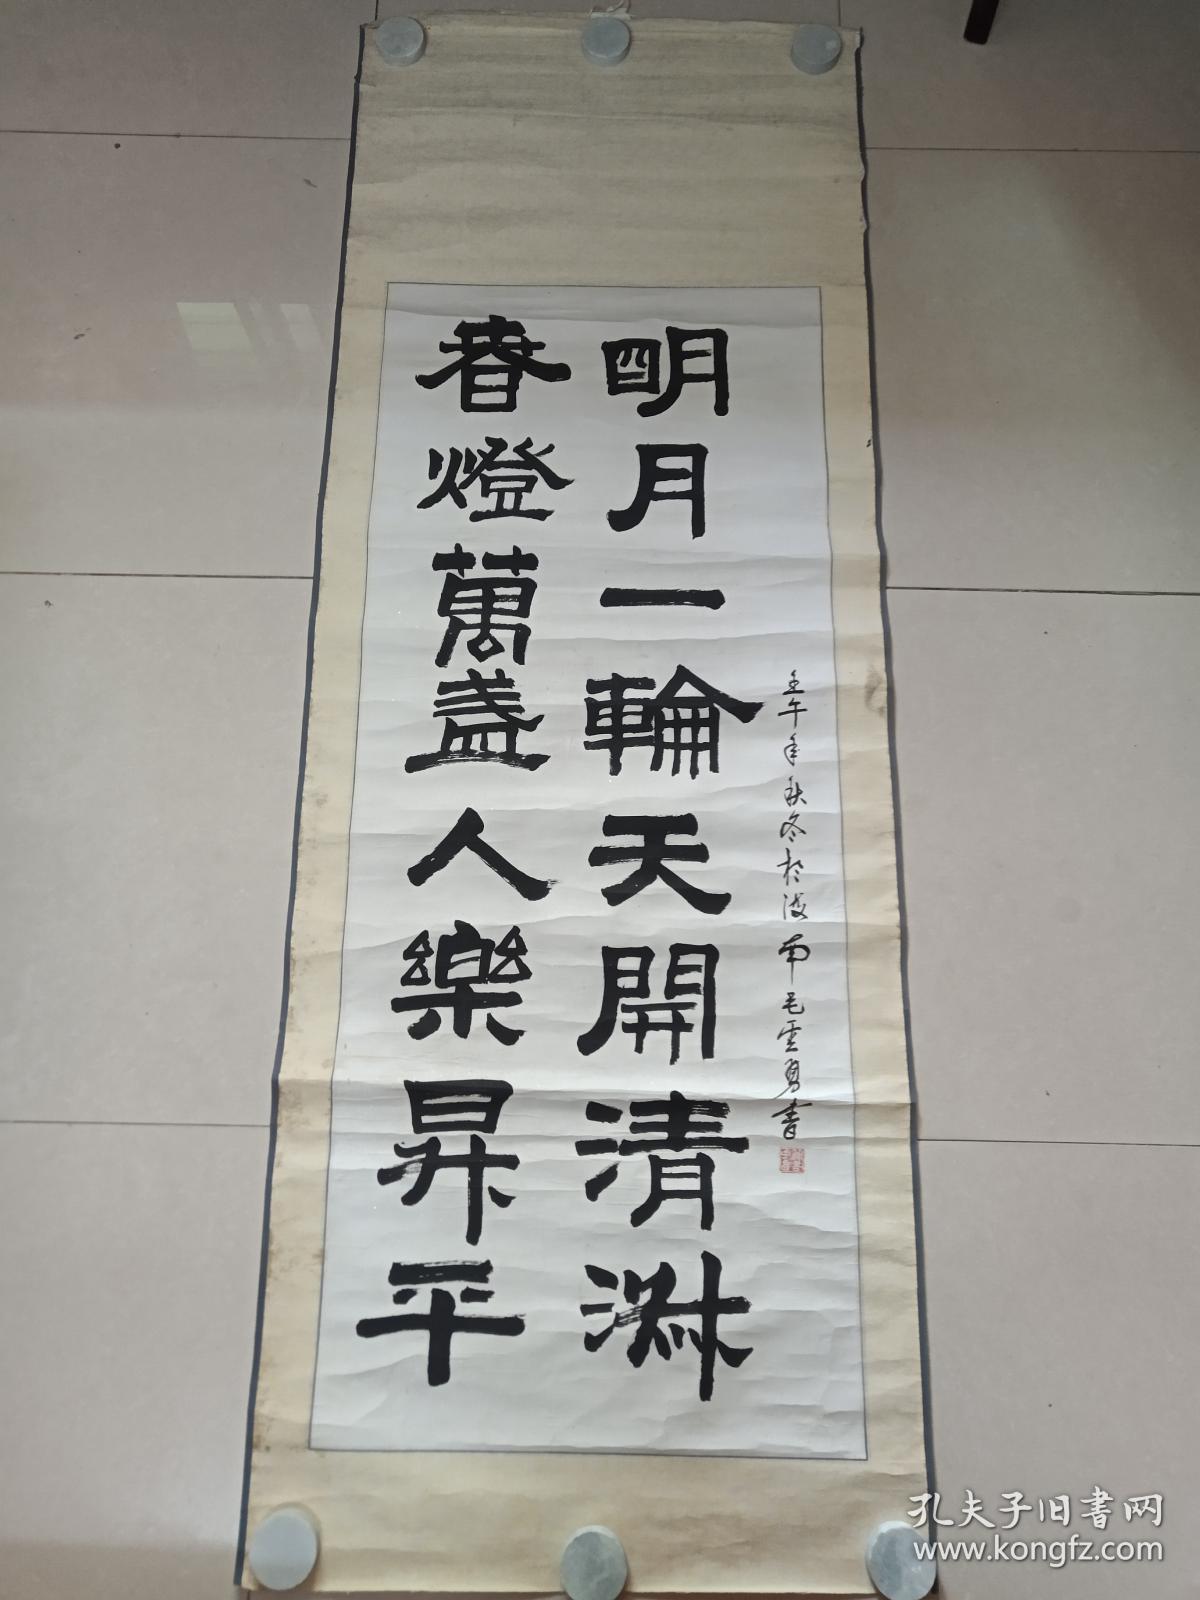 明月一輪天開清淑
春燈萬盞人樂昇平
壬午年秋冬於滇南毛雲勇書
孔夫子旧書网
www.kongfz.com